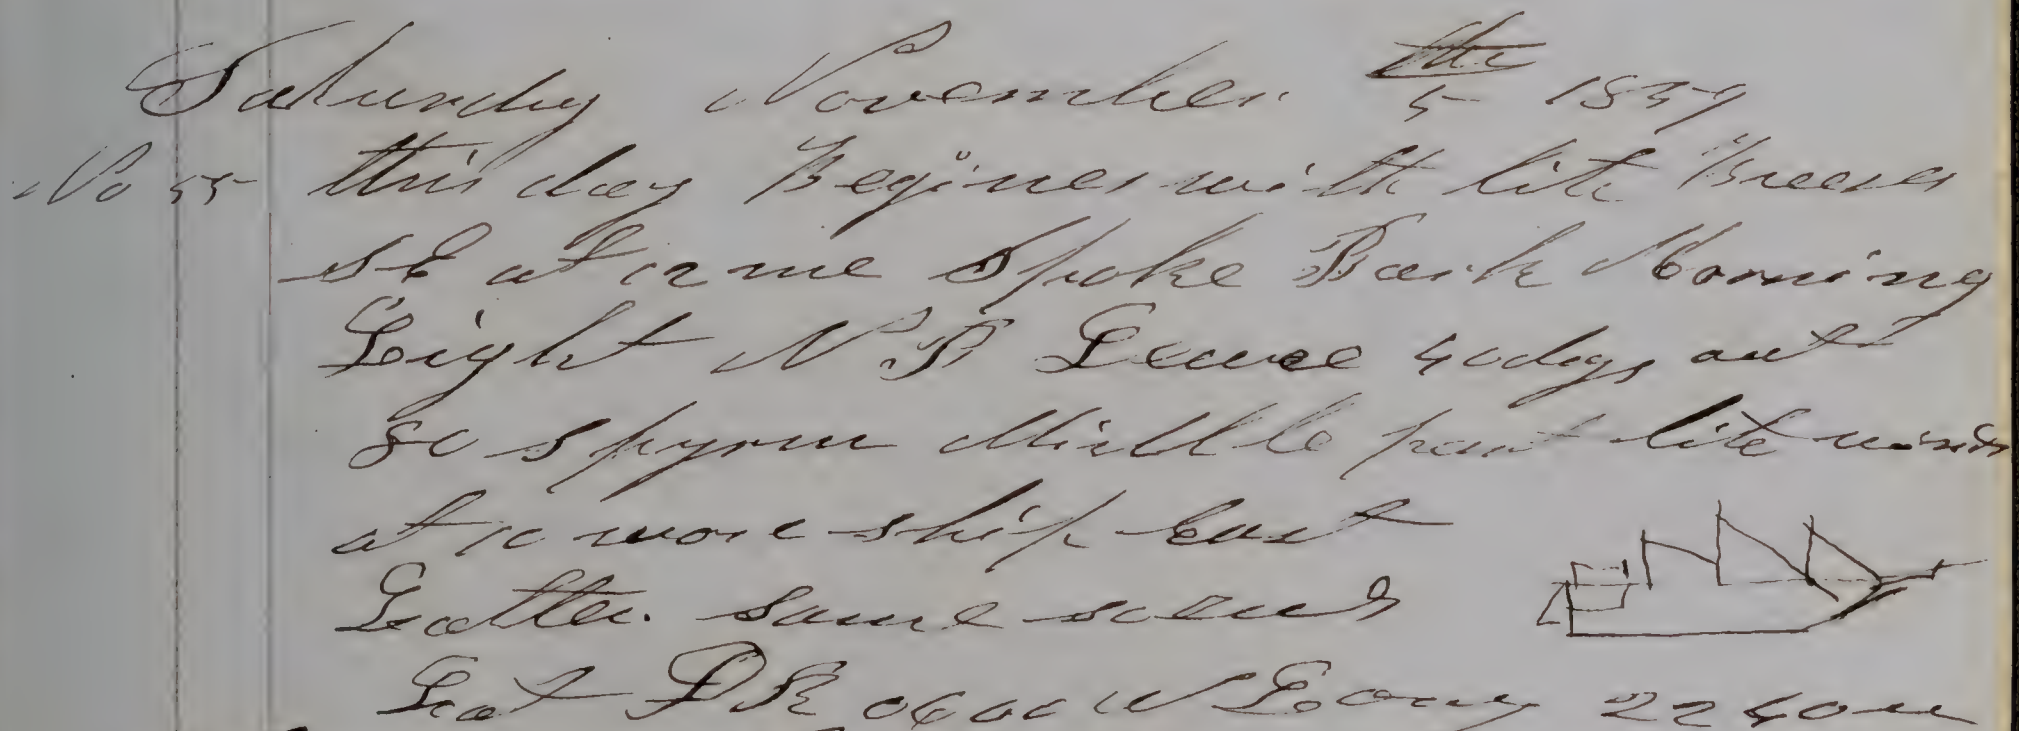 Saturday November 5th 1859
No 55 this day Begines with lite Breeses
SE at 12 me Spoke Bark Morning
Light N B Leace 40 dys out
80 spyrm Middle part lite winds
at 10 wore ship East
Latter same
Lat DR 06 00 N Long 22 40 w